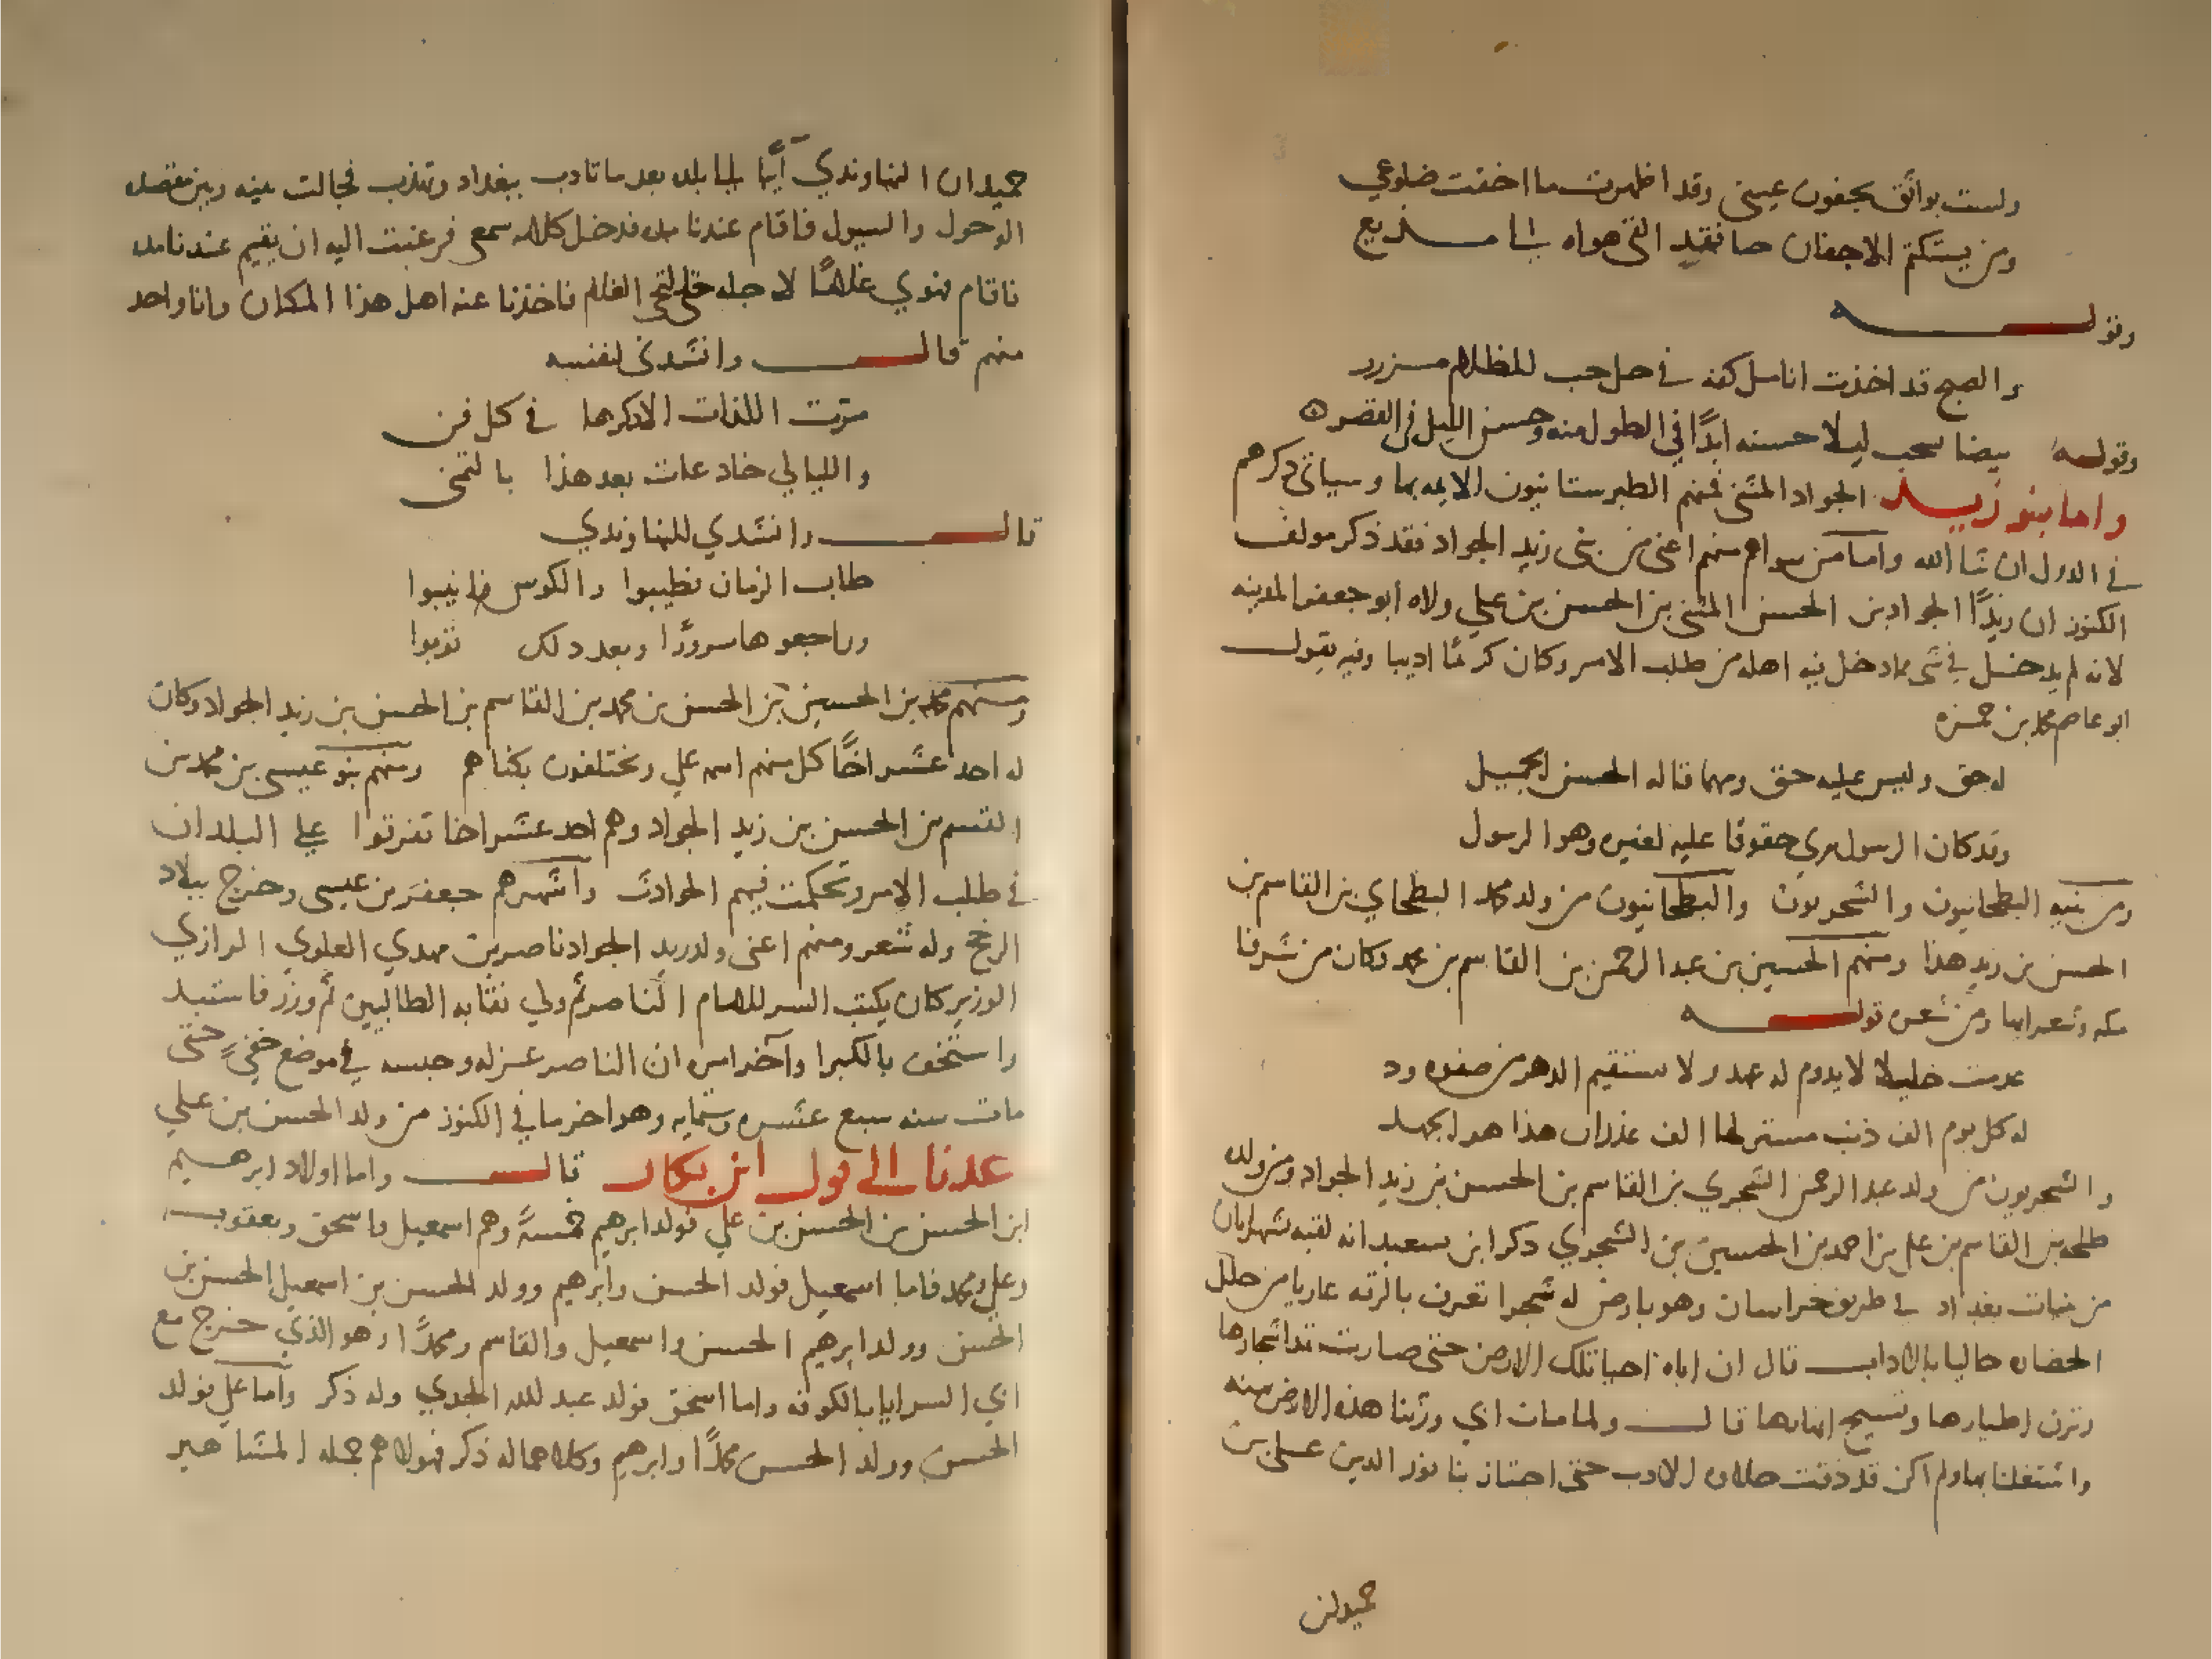 ولست بواثق بجفون عيني وقد اظهرت ما اخفت ضلوعي
ومن يستكتم الاجفان هواه
وقولـــــه
والصبح قد اخذت انامل كفه في حل جيب للظلام مزرر
وقوله بيضا ليلا حسنه ابدًا في الطول منه وحسن الليل في القصر
واما بنو زيد الجواد المثنى فمنهم الطبرستانيون الايمه بها وسياتي ذكرهم
في الدول ان شا الله واما من سواهم منهم اعني من بني زيد الجواد فقد ذكر مولف
الكنوز ان زيدًا الجواد بن الحسن المثنى بن الحسن بن علي ولاه أبو جعفر المدينه
لانه لم يدخل في شي مما دخل فيه اهله من طلب الامر وكان كريمًا اديبا وفيه يقول
ابو عاصم محمد بن حمزه
له حق وليس عليه حق ومهما قاله الحسن الجميل
وقد كان الرسول يري حقوقا عليه لغيره وهو الرسول
ومن بنيه البطحانيون والشجريون والبطحانيون من ولد محمد البطحاي بن القاسم بن
الحسن بن زيد هذا ومنهم الحسين بن عبد الرحمن بن القاسم بن محمد وكان من شرفا
مكه وشعرايها ومن شعره قولـــــه
عدمت خليلا لا يدوم له عهد ولا يستقيم الدهر من صفوه ود
له كل يوم الف ذنب مستر لها الف عذران هذا هو الجهد
والشجريون من ولد عبد الرحمن الشجري بن القاسم بن الحسن بن زيد الجواد ومن ولده
طلحه بن القاسم بن علي بن احمد بن الحسين بن الشجري ذكر ابن سعيد انه لقيه بشهرابان
من جهات بغداد في طريق خراسان وهو بارض له شجرا تعرف بالرته عاريا من حلل
الحضاره حاليا بالاداب قال ان اباه احيا تلك الارض حتى صارت اشجارها
وترن اطيارها وتسيح انهارها قال ولما مات ابي ورثنا هذه الارض منه
واشتغلنا بها ولم اكن قد ذقت حلاوه الادب حتى اجتاز بنا نور الدين علي بن
حميدان
حميدان النهاوندي آيبا الي بلده بعد ما تادب ببغداد وتهذب فحالت بينه وبين مقصده
الوحول والسيول فاقام عندنا مده فدخل كلامه سمعي فرغبت اليه ان يقيم عندنا مده
فاقام الغله فاخذنا عنه اهل هذا المكان وانا واحد
منهم قال وانشدني لنفسه
مرّت اللذات الا ذكرها في كل فن
والليالي خادعات بعد هذا بالتمني
قال وانشدي للنهاوندي
طاب الزمان فطيبوا والكوس
وراجعوها سرورًا وبعد ذلك توبوا
ومنهم محمد بن الحسين بن الحسن بن محمد بن القاسم بن الحسن بن زيد الجواد وكان
له احد عشر اخًا كل منهم اسمه علي ويختلفون بكناهم ومنهم بنو عيسى بن محمد بن
القسم بن الحسن بن زيد الجواد وهم احد عشر اخا تفرقوا علي البلدان
في طلب الامر وتحكمت فيهم الحوادث واشهرهم جعفر بن عيسى وخرج ببلاد
الرخج وله شعر ومنهم اعني ولد زيد الجواد ناصر بن مهدي العلوي الرازي
الوزير كان يكتب السر للامام الناصر ثم ولي نقابه الطالبين ثم وزر فاستبد
واستخف بالكبرا وآخر امره ان الناصر عزله وحبسه في موضع خفيٍّ حتى
مات سنه سبع عشره وستمايه وهو اخر ما في الكنوز من ولد الحسن بن علي
عدنا الي قول ابن بكار قال واما اولاد ابرهيم
ابن الحسن بن الحسن بن علي فولد ابرهيم خمسةً وهم اسمعيل واسحق ويعقوب
وعلي ومحمد فاما اسمعيل فولد الحسن وابرهيم وولد الحسن بن اسمعيل الحسن بن
الحسن وولد ابرهيم الحسن واسمعيل والقاسم ومحمدًا وهو الذي خرج مع
ابي السرايا بالكوفه واما اسحق فولد عبد الله الجدي وله ذكر واما علي فولد
الحسن وولد الحسن محمدًا وابرهيم وكلاهما له ذكر فهولا هم جمله المشاهير